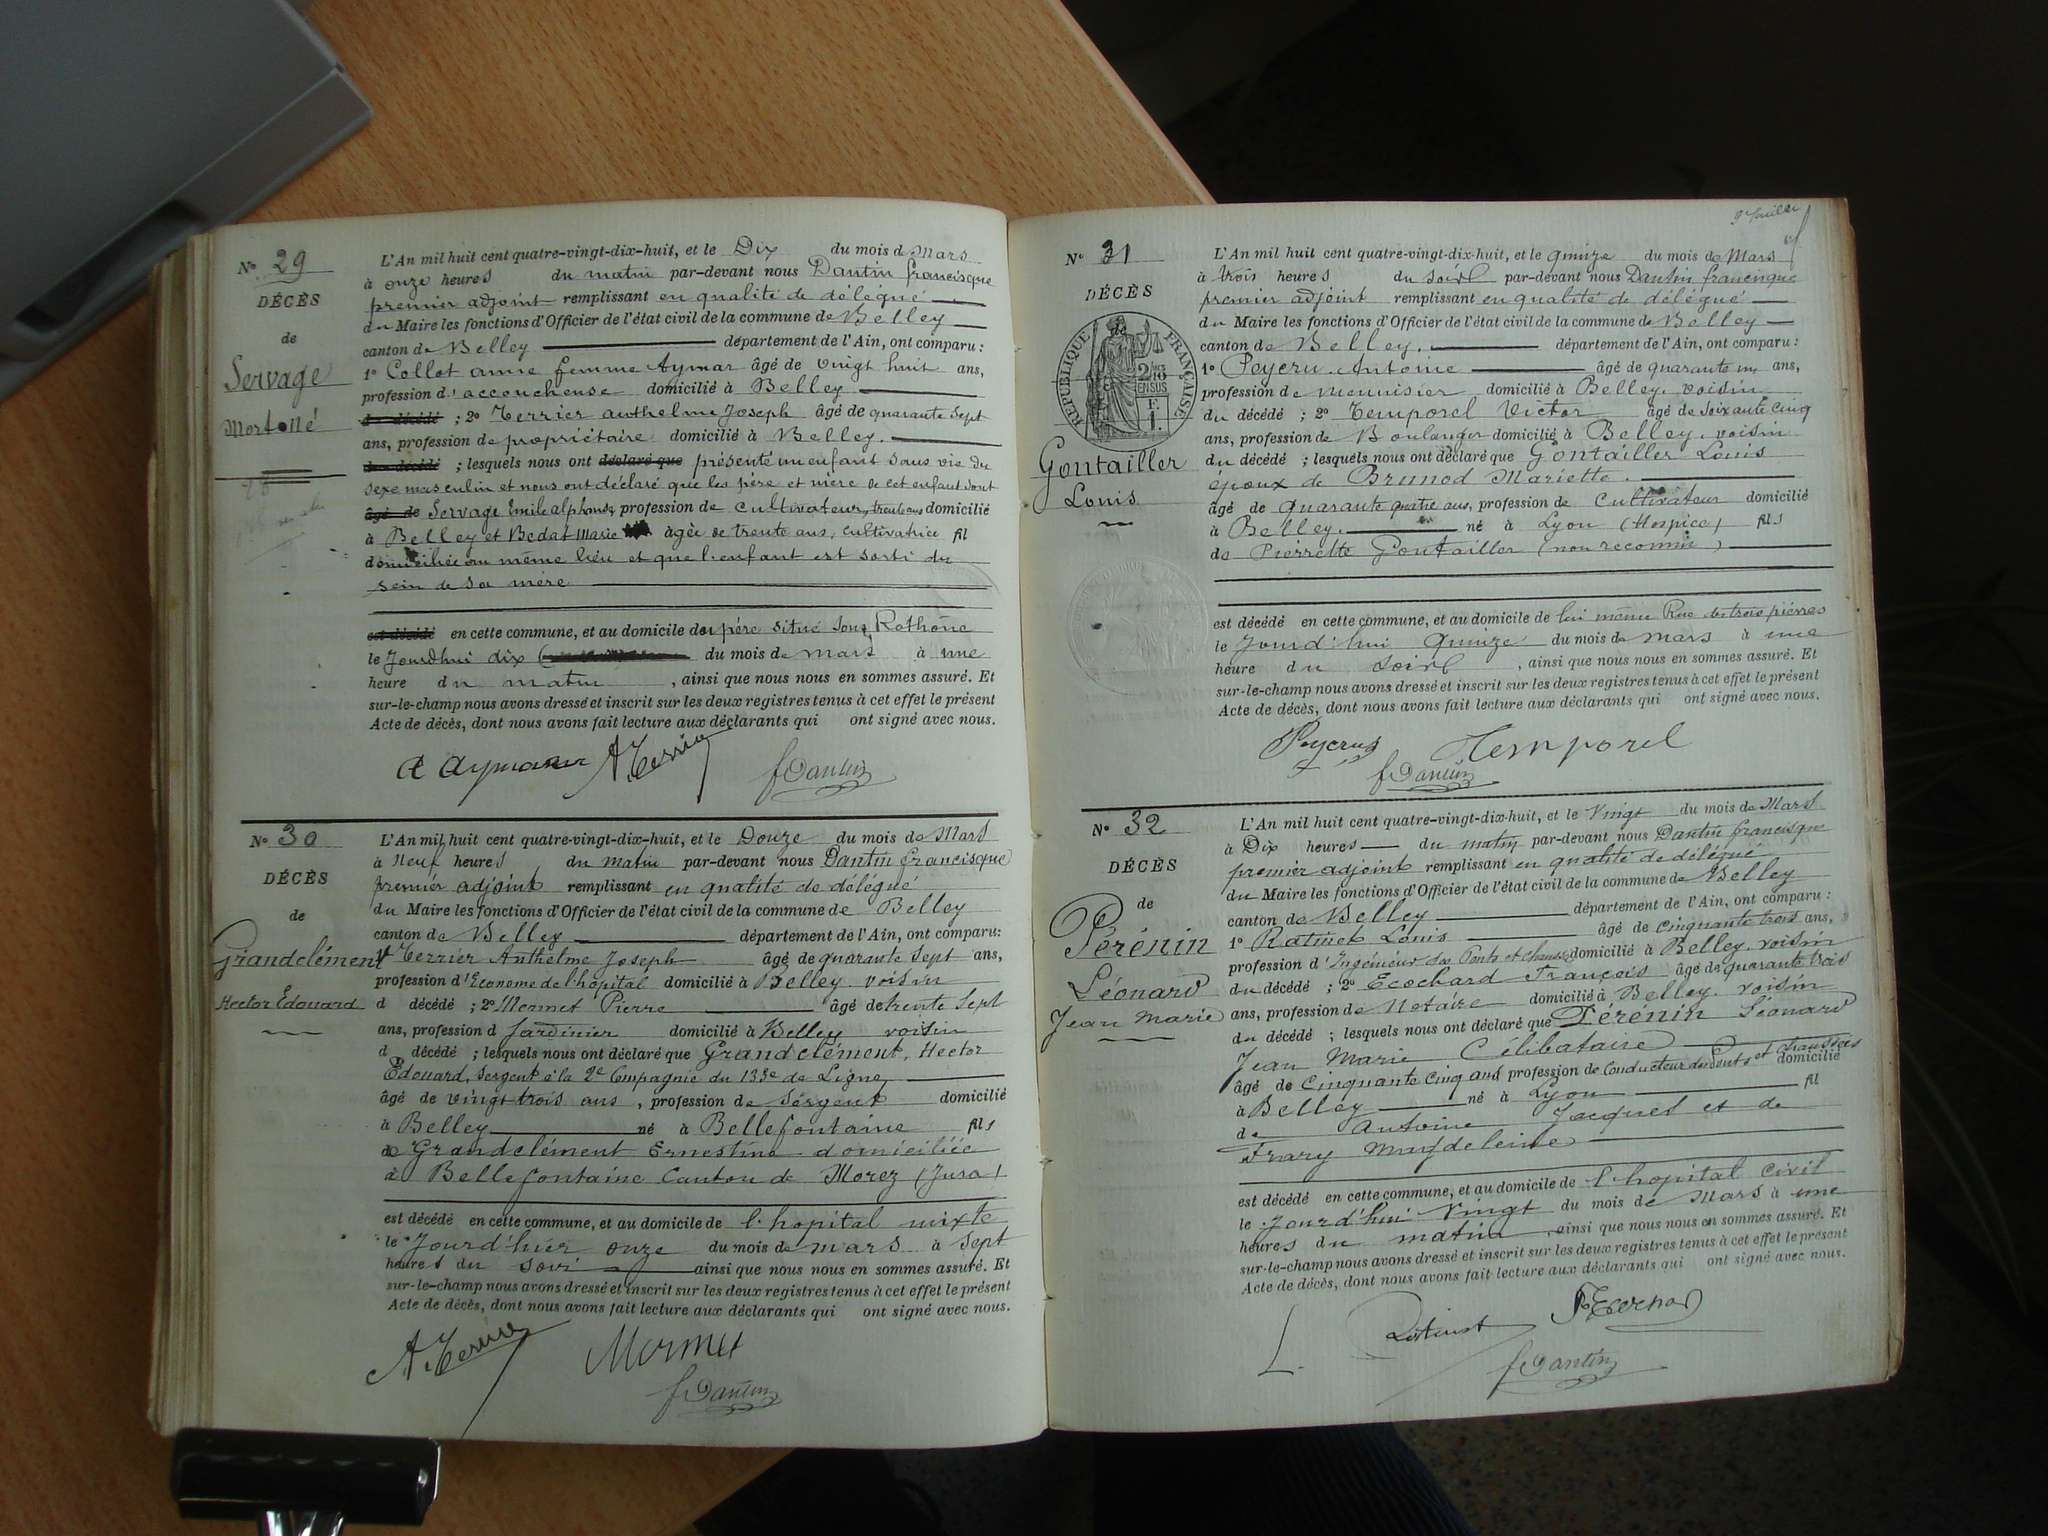 N° 29
DÉCÈS
de
Servage
Mort né
L'An mil huit cent quatre-vingt-dix-huit, et le Dix du mois de Mars
à onze heures du matin par-devant nous Dantin francisque
premier adjoint remplissant en qualité de délégué
du Maire les fonctions d'Officier de l'état civil de la commune de Belley
canton de Belley département de l'Ain, ont comparu :
1° Collot anne femme Aymar âgé de vingt huit ans,
profession d'accoucheuse domicilié à Belley
du décédé ; 2° Terrier anthelme Joseph âgé de quarante sept
ans, profession de propriétaire domicilié à Belley.
du décédé ; lesquels nous ont déclaré que présenté un enfant sans vie du
sexe masculin et nous ont déclaré que les père et mère de cet enfant sont
âgé de Servage Emile alphonse, profession de cultivateur, trente ans domicilié
à Belley et Bedat Marie âgée de trente ans, cultivatrice fil
domiciliée au même lieu et que l'enfant est sorti du
sein de sa mère
est décédé en cette commune, et au domicile du père situé sous Rothone
le Jourdhui dix du mois de mars à une
heure du matin, ainsi que nous nous en sommes assuré. Et
sur-le-champ nous avons dressé et inscrit sur les deux registres tenus à cet effet le présent
Acte de décès, dont nous avons fait lecture aux déclarants qui ont signé avec nous.
A Aymar A. Terrier
f Dantin
N° 30
DÉCÈS
de
Grandclément
Hector Édouard
L'An mil huit cent quatre-vingt-dix-huit, et le Douze du mois de Mars
à Neuf heures du matin par-devant nous Dantin francisque
premier adjoint remplissant en qualité de délégué
du Maire les fonctions d'Officier de l'état civil de la commune de Belley
canton de Belley département de l'Ain, ont comparu :
1° Terrier Anthelme Joseph âgé de quarante sept ans,
profession d'Econome de l'hôpital domicilié à Belley. voisin
d décédé ; 2° Mermet Pierre âgé de trente sept
ans, profession d Jardinier domicilié à Belley voisin
d décédé ; lesquels nous ont déclaré que Grandclément, Hector
Édouard, sergent à la 2e Compagnie du 133e de Ligne
âgé de vingt trois ans, profession de sergent domicilié
à Belley né à Bellefontaine fils
de Grandclément Ernestine domiciliée
à Bellefontaine Canton de Morez (Jura)
est décédé en cette commune, et au domicile de l'hopital mixte
le Jourd'hier onze du mois de mars à sept
heures du soir ainsi que nous nous en sommes assuré. Et
sur-le-champ nous avons dressé et inscrit sur les deux registres tenus à cet effet le présent
Acte de décès, dont nous avons fait lecture aux déclarants qui ont signé avec nous.
A. Terrier Mermet
f Dantin
N° 31
DÉCÈS
de
RÉPUBLIQUE FRANÇAISE
2/10
EN SUS
F.
1.
Gontailler
Louis
L'An mil huit cent quatre-vingt-dix-huit, et le quinze du mois de Mars
à trois heures du soir par-devant nous Dantin francisque
premier adjoint remplissant en qualité de délégué
du Maire les fonctions d'Officier de l'état civil de la commune de Belley
canton de Belley. département de l'Ain, ont comparu :
1° Peycru Antoine âgé de quarante un ans,
profession de menuisier domicilié à Belley. voisin
du décédé ; 2° Temporel Victor âgé de soixante cinq
ans, profession de Boulanger domicilié à Belley. voisin
du décédé ; lesquels nous ont déclaré que Gontailler Louis
époux de Brunod Mariette.
âgé de quarante quatre ans, profession de cultivateur domicilié
à Belley. né à Lyon (Hospice) fils
de Pierrette Gontailler (non reconnu)
est décédé en cette commune, et au domicile de lui même Rue des trois pierres
le Jourd'hui Quinze du mois de mars à une
heure du soir, ainsi que nous nous en sommes assuré. Et
sur-le-champ nous avons dressé et inscrit sur les deux registres tenus à cet effet le présent
Acte de décès, dont nous avons fait lecture aux déclarants qui ont signé avec nous.
Peycru Temporel
f Dantin
N° 32
DÉCÈS
de
Pérénin
Léonard
Jean Marie
L'An mil huit cent quatre-vingt-dix-huit, et le Vingt du mois de Mars
à Dix heures du matin par-devant nous Dantin francisque
premier adjoint remplissant en qualité de délégué
du Maire les fonctions d'Officier de l'état civil de la commune de Belley
canton de Belley département de l'Ain, ont comparu :
1° Ratinet Louis âgé de cinquante trois ans,
profession d'Ingénieur des Ponts et chaussées domicilié à Belley. voisin
du décédé ; 2° Ecochard François âgé de quarante trois
ans, profession de Notaire domicilié à Belley. voisin
du décédé ; lesquels nous ont déclaré que Pérénin Léonard
Jean Marie Célibataire
âgé de cinquante cinq ans profession de Conducteur des ponts et chaussées domicilié
à Belley né à Lyon fil
de Antoine Jacques et de
Frary Magdeleine
est décédé en cette commune, et au domicile de l'hopital civil
le Jourd'hui Vingt du mois de Mars à une
heures du matin, ainsi que nous nous en sommes assuré. Et
sur-le-champ nous avons dressé et inscrit sur les deux registres tenus à cet effet le présent
Acte de décès, dont nous avons fait lecture aux déclarants qui ont signé avec nous.
L. Ratinet
f Dantin